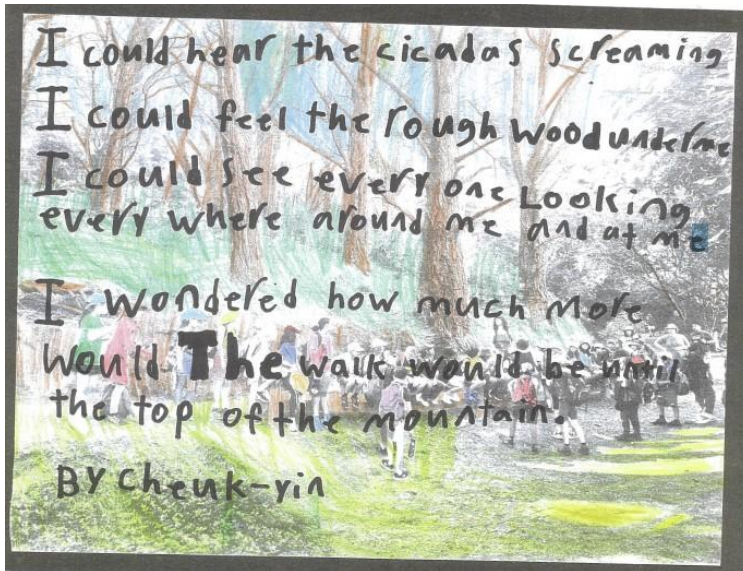 I could hear the cicadas screaming
I could feel the rough wood under me
I could see every one Looking
every where around me and at me
I wondered how much more
would The walk would be until
the top of the mountain.
BY Cheuk-yin